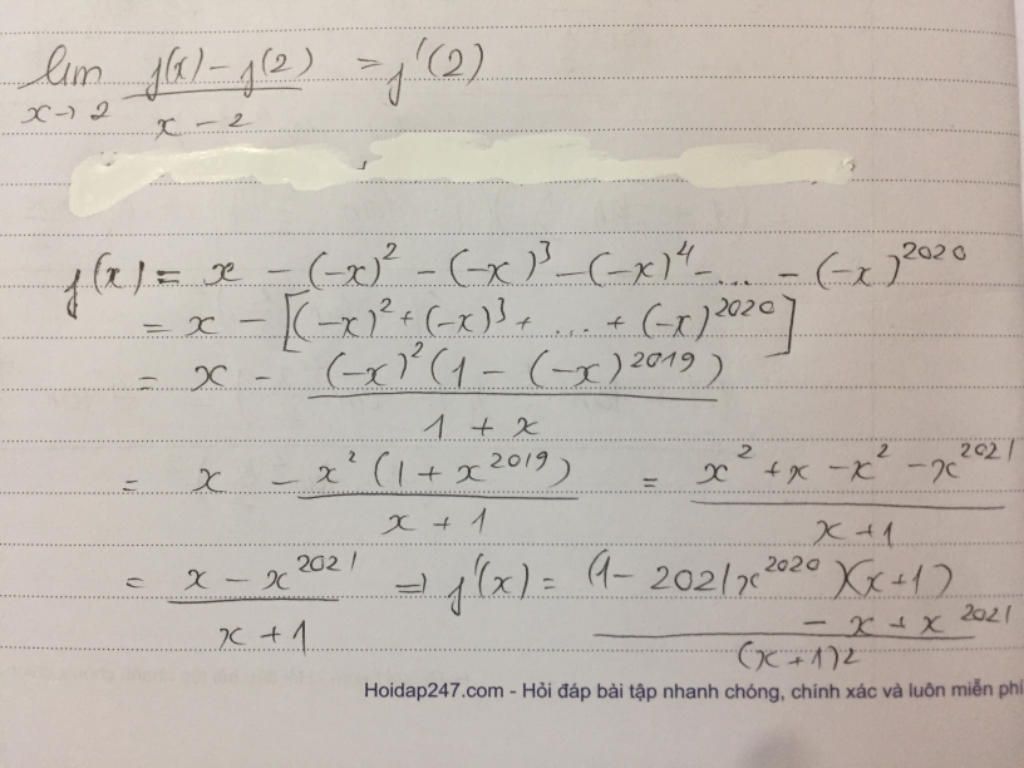 lim f(x) - f(2) / x - 2 = f'(2)
x→2
f(x) = x - (-x)² - (-x)³ - (-x)⁴ - ... - (-x)²⁰²⁰
= x - [(-x)² + (-x)³ + ... + (-x)²⁰²⁰]
= x - (-x)²(1 - (-x)²⁰¹⁹) / 1 + x
= x - x²(1 + x²⁰¹⁹) / x + 1 = x² + x - x² - x²⁰²¹ / x + 1
= x - x²⁰²¹ / x + 1 => f'(x) = (1 - 2021x²⁰²⁰)(x + 1) - x + x²⁰²¹ / (x + 1)2
Hoidap247.com - Hỏi đáp bài tập nhanh chóng, chính xác và luôn miễn phí